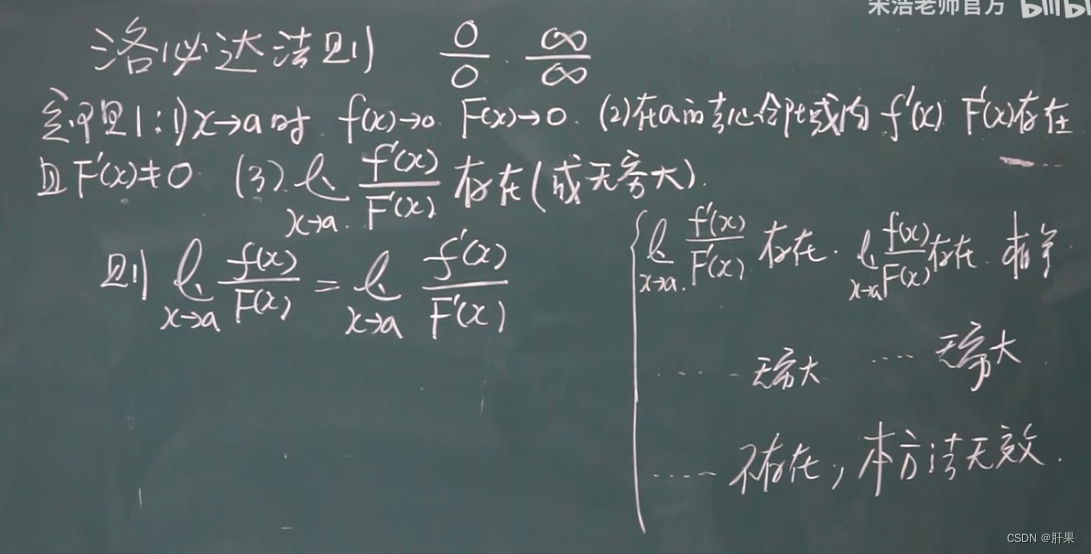 宋浩老师官方 bilibili
洛必达法则 0/0 . ∞/∞
定理1:1) x→a时. f(x)→0 F(x)→0. (2)在a的去心邻域内 f'(x) F'(x)存在
且F'(x)≠0 (3). lim x→a. f'(x)/F'(x) 存在(或无穷大).
则 lim x→a f(x)/F(x) = lim x→a f'(x)/F'(x)
{ lim x→a. f'(x)/F'(x) 存在. lim x→a f(x)/F(x) 存在. 相等
...... 无穷大 .... 无穷大.
..... 不存在, 本方法无效.
CSDN @肝果